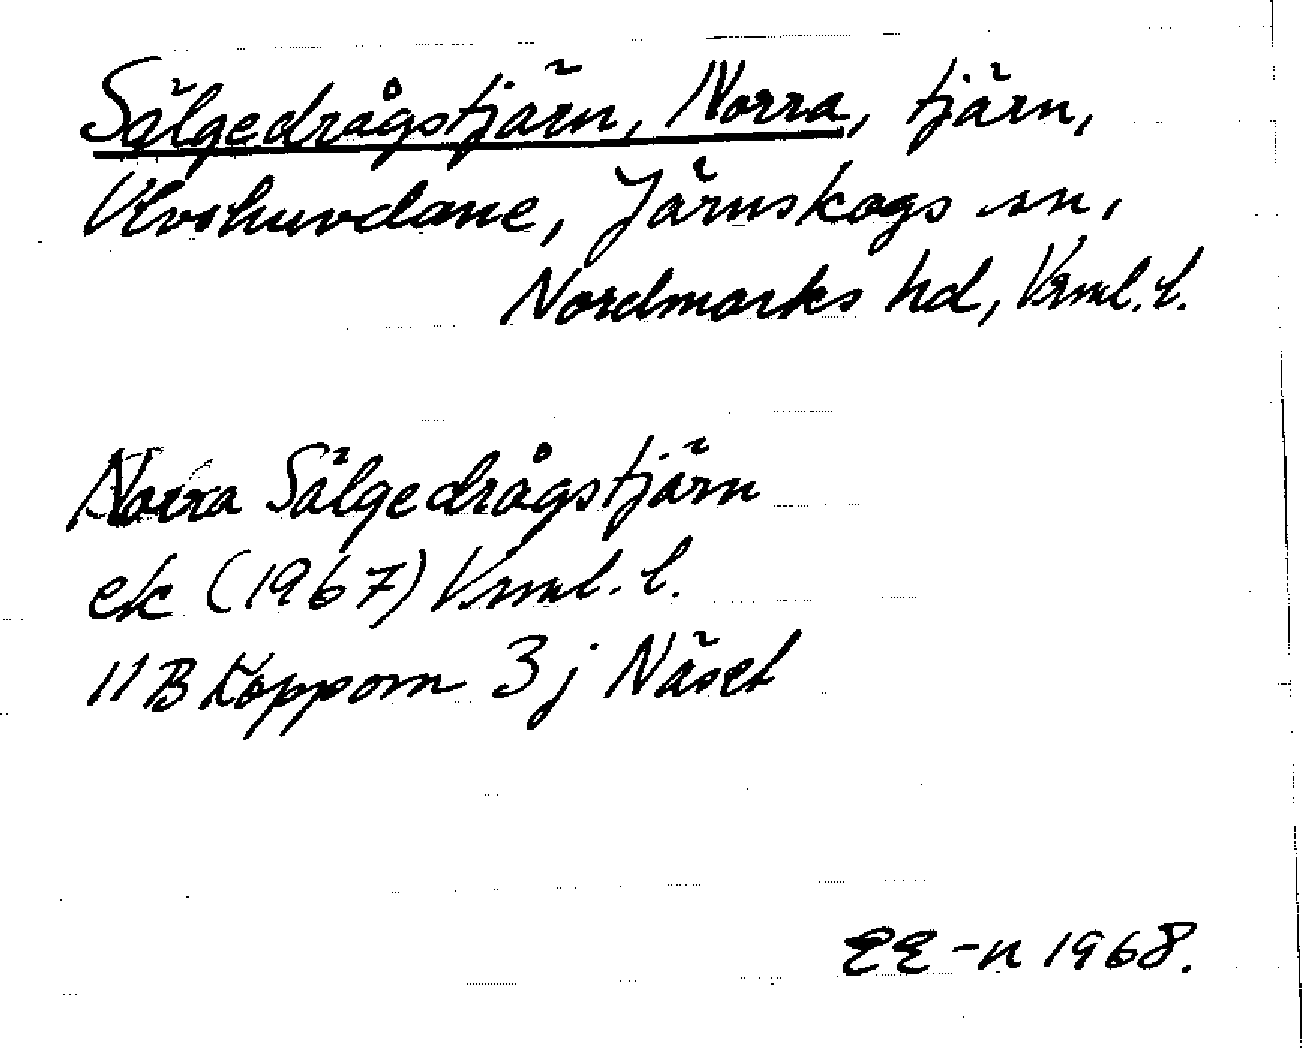 Sälgedrågstjärn, Norra, tjärn,
Ulvshuvdane, Järnskogs sn,
Nordmarks hd, Vrml. l.
Norra Sälgedrågstjärn
ek (1967) Vrml. l.
11 B Koppom 3 j Näset
EE-n 1968.